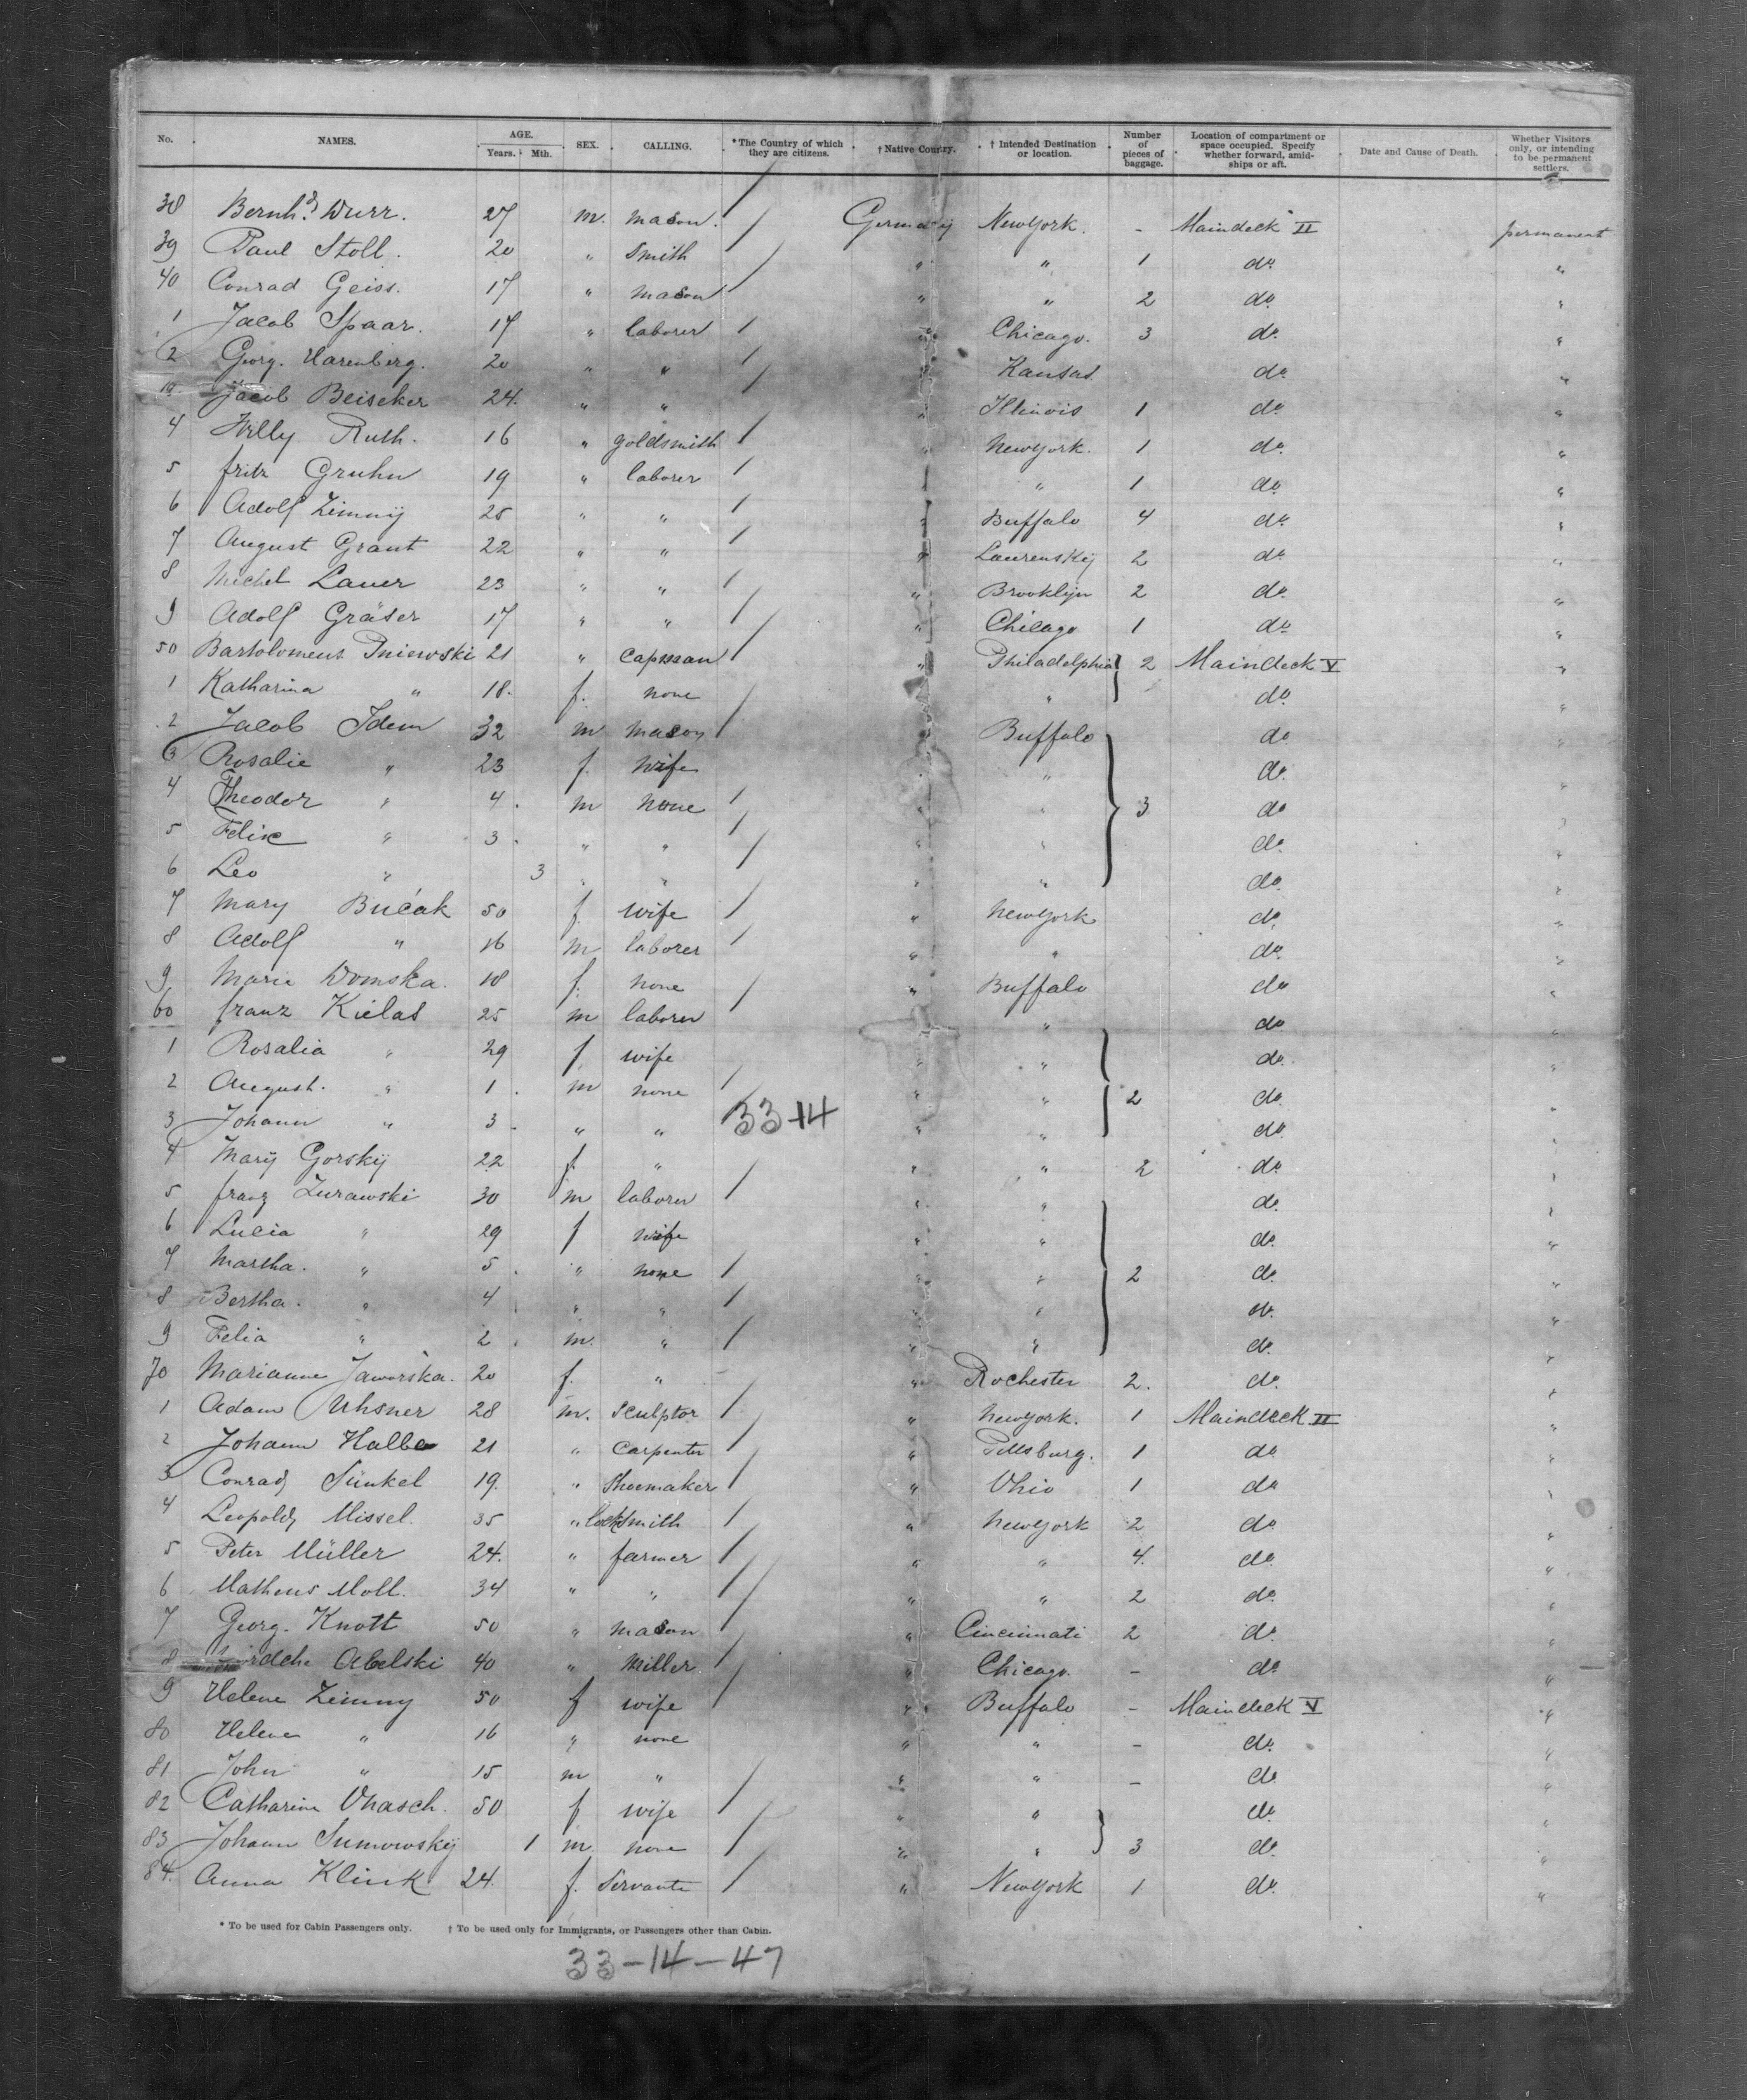 No. NAMES. AGE. Years. Mth. SEX. CALLING. *The Country of which they are citizens. †Native Country. † Intended Destination or location. Number of pieces of baggage. Location of compartment or space occupied. Specify whether forward, amidships or aft. Date and Cause of Death. Whether Visitors only, or intending to be permanent settlers.
38 Bernhd. Wurr. 27 m. mason. / Germany New York. - Maindeck II permanent
39 Paul Stoll. 20 " Smith / " " 1 do. "
40 Conrad Geiss. 17 " mason / " " 2 do. "
1 Jacob Spaar. 17 " laborer / " Chicago. 3 do. "
2 Georg. Harenberg. 20 " " / " Kansas do. "
Jacob Beiseker 24. " " / " Illinois 1 do. "
4 Willy Ruth. 16 " goldsmith / " New York. 1 do. "
5 Fritz Gruhn 19 " laborer / " " 1 do. "
6 Adolf Zimnÿ 25 " " / " Buffalo 4 do. "
7 August Grant 22 " " / " 2 do. "
8 Michel Lauer 23 " " / " Brooklyn 2 do. "
9 Adolf Gräser 17 " " / " Chicago 1 do. "
50 Bartolomeus Pniewski 21 " / " Philadelphia 2 Maindeck V "
1 Katharina " 18. f. none " " do. "
2 Jacob Idem 32 m mason / " Buffalo do. "
3 Rosalie " 23 f. wife " " do. "
4 Theodor " 4. m none / " " 3 do. "
5 Felix " 3. " " / " " do. "
6 Leo " 3 " " / " " do. "
7 Mary Bućak 50 f wife / " New York do. "
8 Adolf " 16 m laborer / " " do. "
9 Marie Womska. 18 f. none " Buffalo do. "
60 Franz Kielas 25 m laborer / " " do. "
1 Rosalia " 29 f wife " " do. "
2 August. " 1. m none / " " 2 do. "
3 Johann " 3. " " 33-14 " " do. "
4 Marÿ Gorskÿ 22 f. " " " 2 do. "
5 Franz Zurawski 30 m laborer / " " do. "
6 Lucia " 29 f wife " " do. "
7 Martha. " 5. " none / " " 2 do. "
8 Bertha. " 4. " " / " " do. "
9 Felia " 2. m. " / " " do. "
70 Marianne Jaworska. 20 f. " " Rochester 2. do. "
1 Adam Uhsner 28 m. Sculptor / " New York. 1 Maindeck II "
2 Johann Halbe 21 " Carpenter / " Pittsburg. 1 do. "
3 Conrad Sünkel 19. " Shoemaker / " Ohio 1 do. "
4 Leopold Missel. 35 " locksmith / " New York 2 do. "
5 Peter Müller 24. " farmer / " " 4. do. "
6 Matheus Moll. 34 " " / " " 2 do. "
7 Georg. Knott 50 " mason / " Cincinnati 2 do. "
8 Abelski 40 " Miller / " Chicago. - do. "
9 Helene Zimny 50 f wife / " Buffalo - Maindeck V "
80 Helene " 16 " none " " - do. "
81 John " 15 m " " " - do. "
82 Catharine Uhasch. 50 f wife / " " do. "
83 Johann Sumowskÿ 1 m. none / " " 3 do. "
84. Anna Klink 24. f. Servante / " New York 1 do. "
* To be used for Cabin Passengers only. † To be used only for Immigrants, or Passengers other than Cabin.
33-14-47